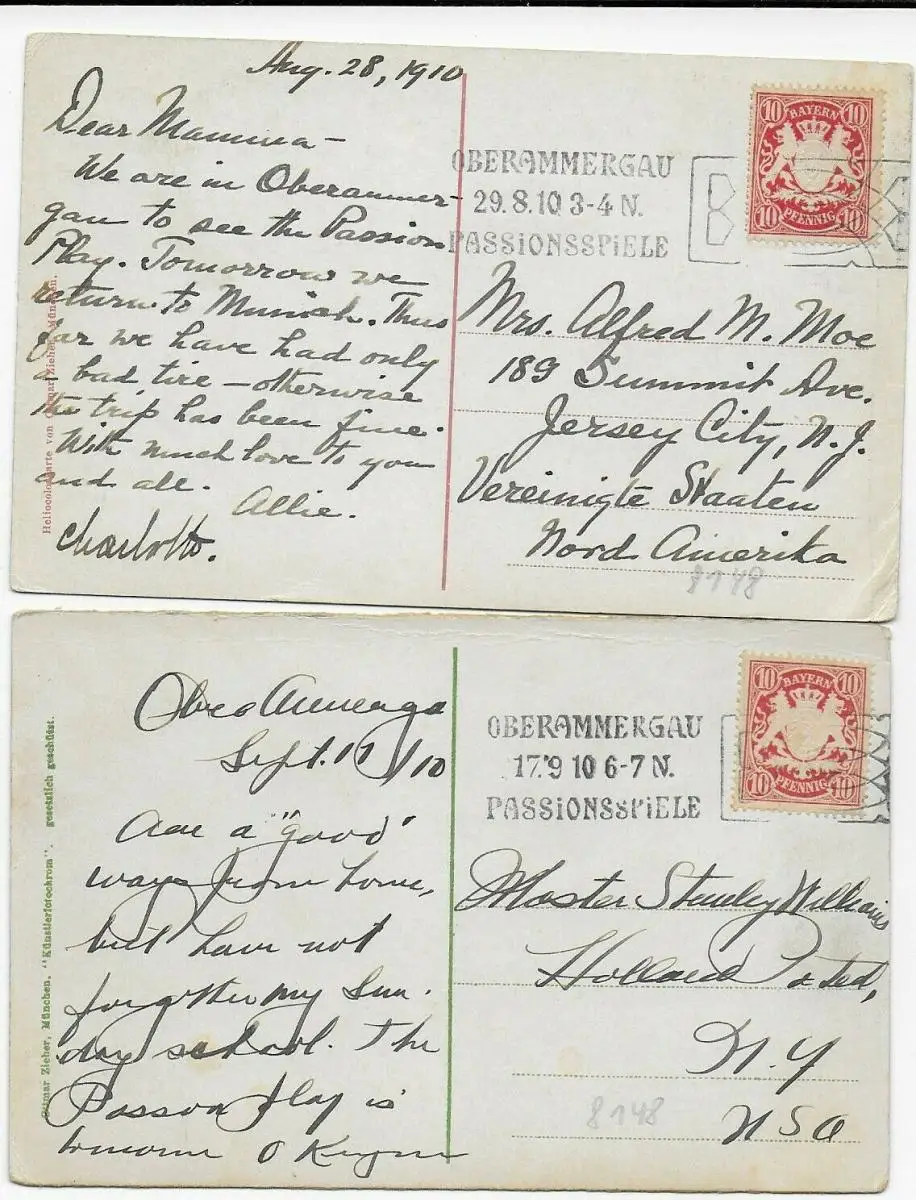 Aug. 28, 1910
Dear Mamma—
We are in Oberammer-
gau to see the Passion
Play. Tomorrow we
return to Munich. Thus
far we have had only
a bad tire — otherwise
the trip has been fine.
With much love to you
and all.
Allie.
Charlotte.
Heliocolorkarte von Ottmar Zieher, München.
OBERAMMERGAU
29.8.10 3-4 N.
PASSIONSSPIELE
10 BAYERN 10
10 PFENNIG 10
Mrs. Alfred M. Moe
189 Summit Ave.
Jersey City, N.J.
Vereinigte Staaten
Nord Amerika
8148
Sept. 17/10
Am a "good"
ways from home,
but have not
forgotten my Sun-
day school. The
Passion Play is
tomorrow
Ottmar Zieher, München. "Künstlerfotochrom". gesetzlich geschützt.
OBERAMMERGAU
17.9 10 6-7 N.
PASSIONSSPIELE
10 BAYERN 10
10 PFENNIG 10
Master Stanley Williams
Holland
N.Y
USA
8148